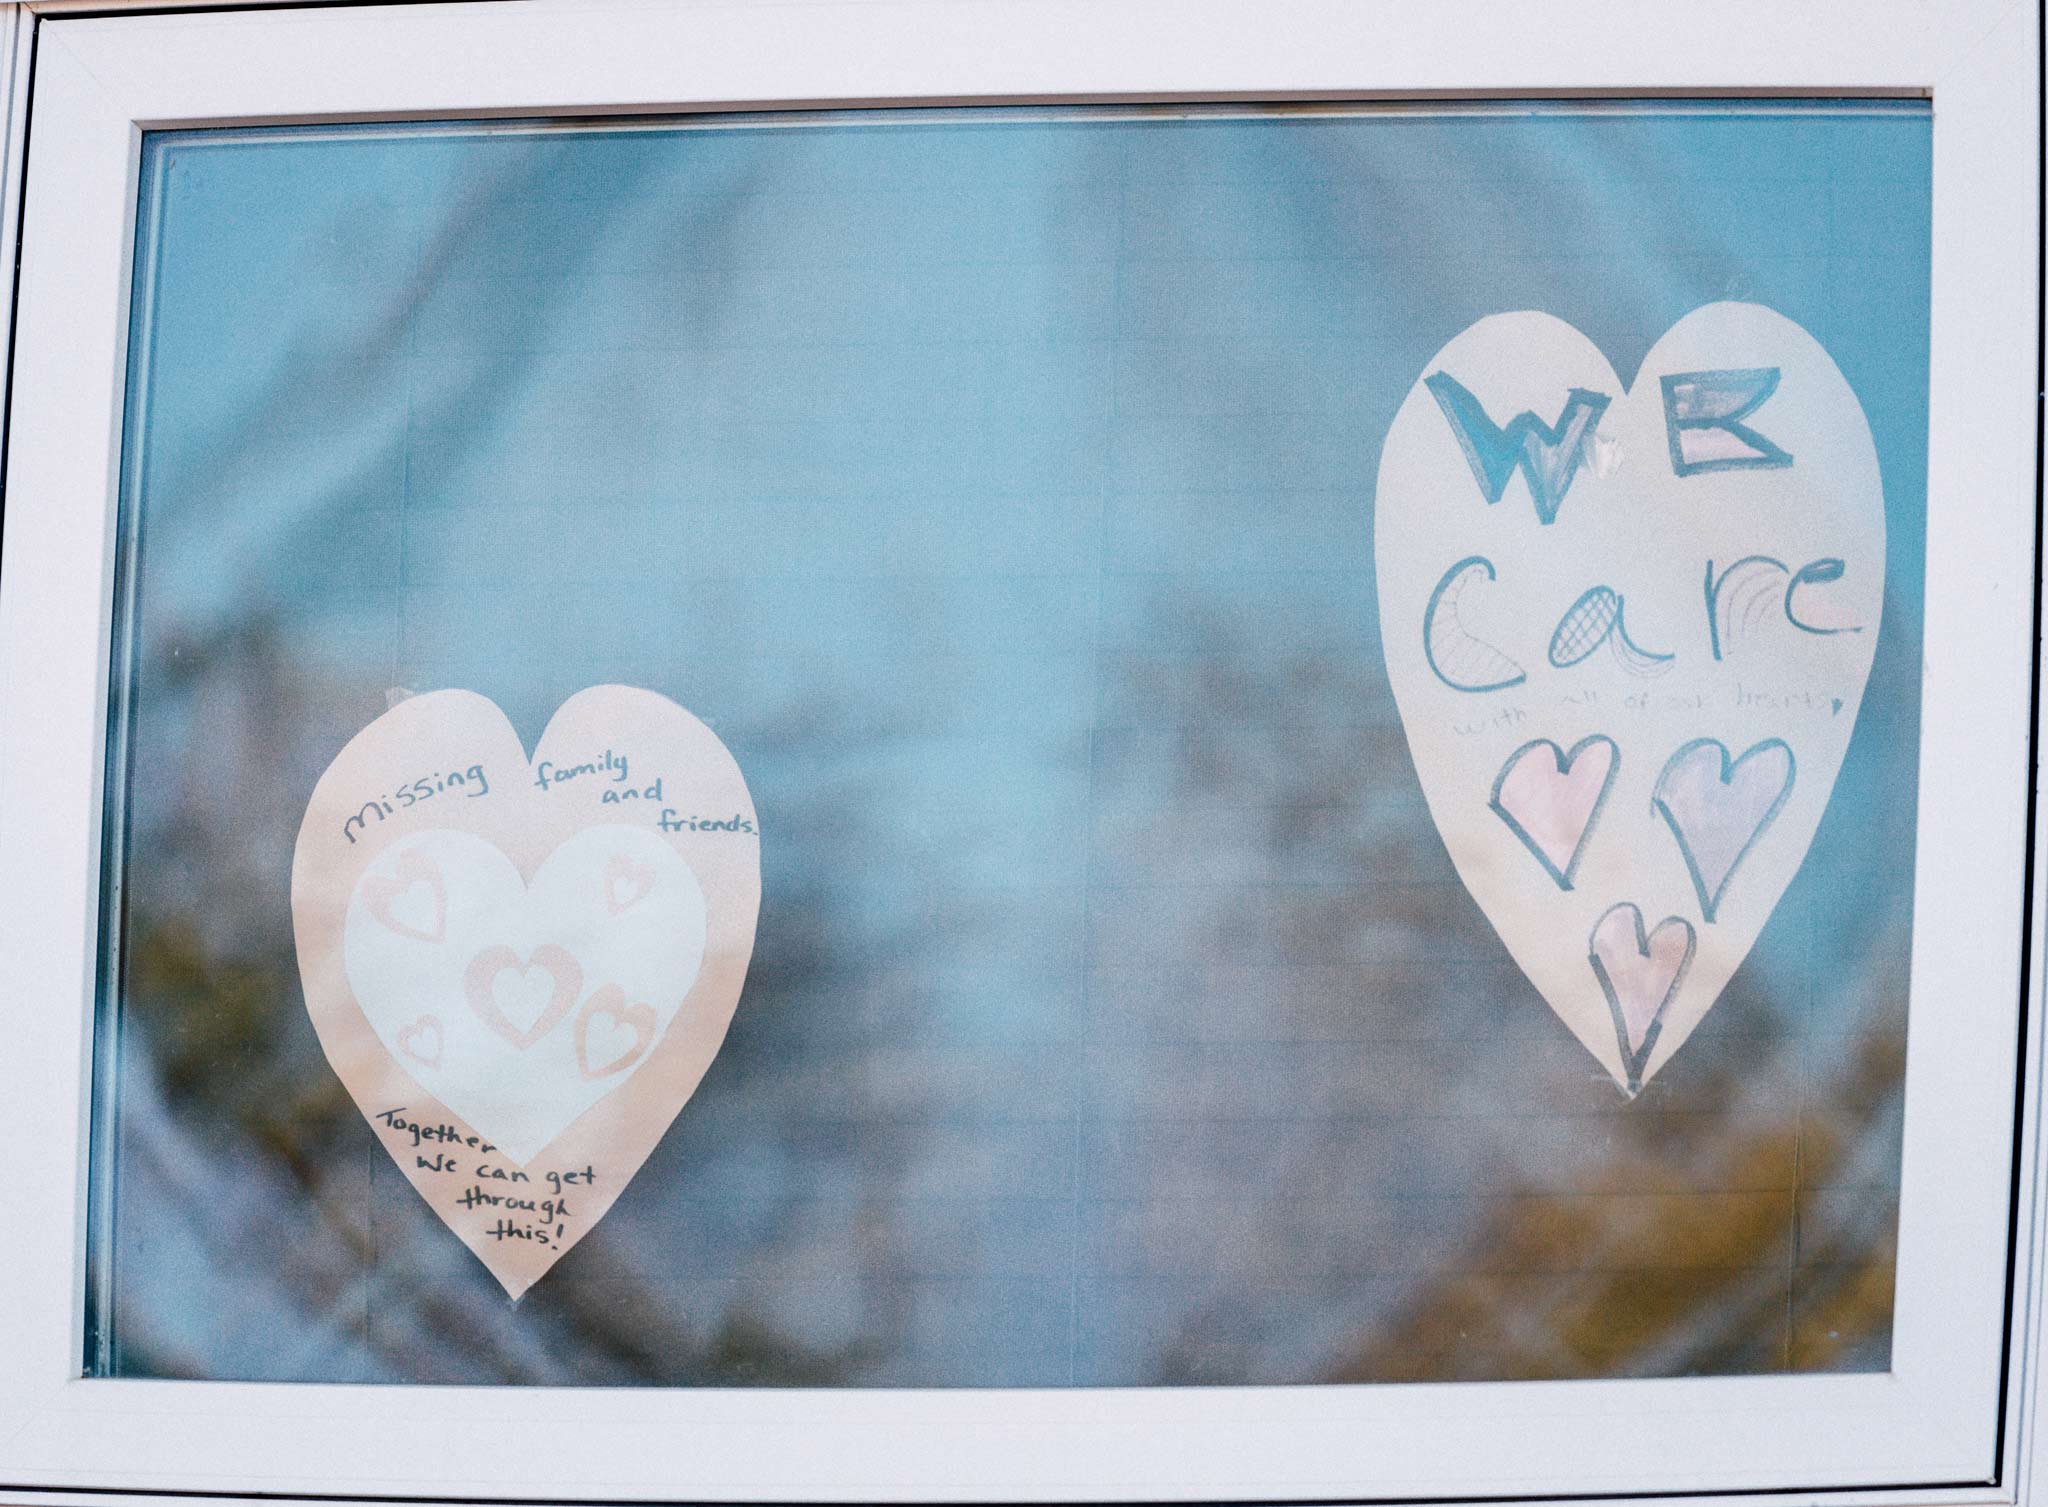 missing family
and
friends.
Together
We can get
through
this!
WE
Care
with all of our hearts